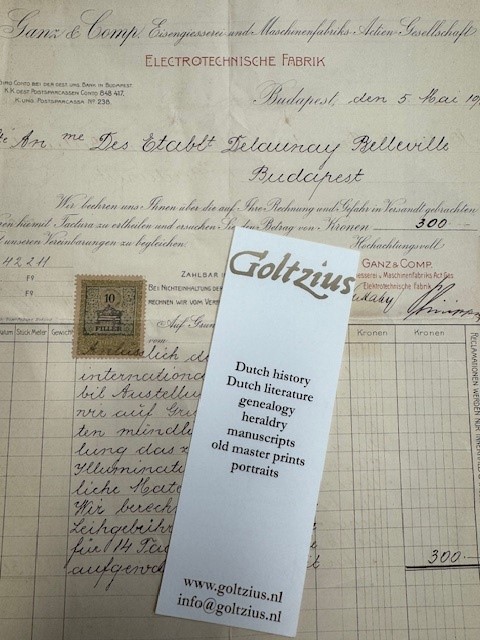 Ganz & Comp. Eisengiesserei und Maschinenfabriks-Actien-Gesellschaft
ELECTROTECHNISCHE FABRIK
GIRO CONTO BEI DER OEST. UNG. BANK IN BUDAPEST.
K.K. OEST. POSTSPARCASSEN CONTO 848.417.
K. UNG. POSTSPARCASSA No 238.
Budapest, den 5 Mai 19
An me Des Etablt Delaunay Belleville
Budapest
Wir beehren uns Ihnen über die auf Ihre Rechnung und Gefahr in Versandt gebrachten
hiermit Factura zu ertheilen und ersuchen Sie den Betrag von Kronen 300.—
unseren Vereinbarungen zu begleichen.
Hochachtungsvoll
42211
F9
F9
ZAHLBAR
GANZ & COMP.
Maschinenfabriks Act. Ges.
Elektrotechnische Fabrik
BEI NICHTEINHALTUNG DE
RECHNEN WIR VOM VERF
10
FILLÉR
Auf Grun
vom
Datum
Stück
Meter
Gewicht
Kronen
Kronen
RECLAMATIONEN WERDEN NUR
lich de
internationa
bil Austellu
wir auf Gru
ten mündli
lung das z
Illuminate
liche Mate
Wir berech
Leihgebühr
für 14 Ta
aufgewa
300.—
Goltzius
Dutch history
Dutch literature
genealogy
heraldry
manuscripts
old master prints
portraits
www.goltzius.nl
info@goltzius.nl